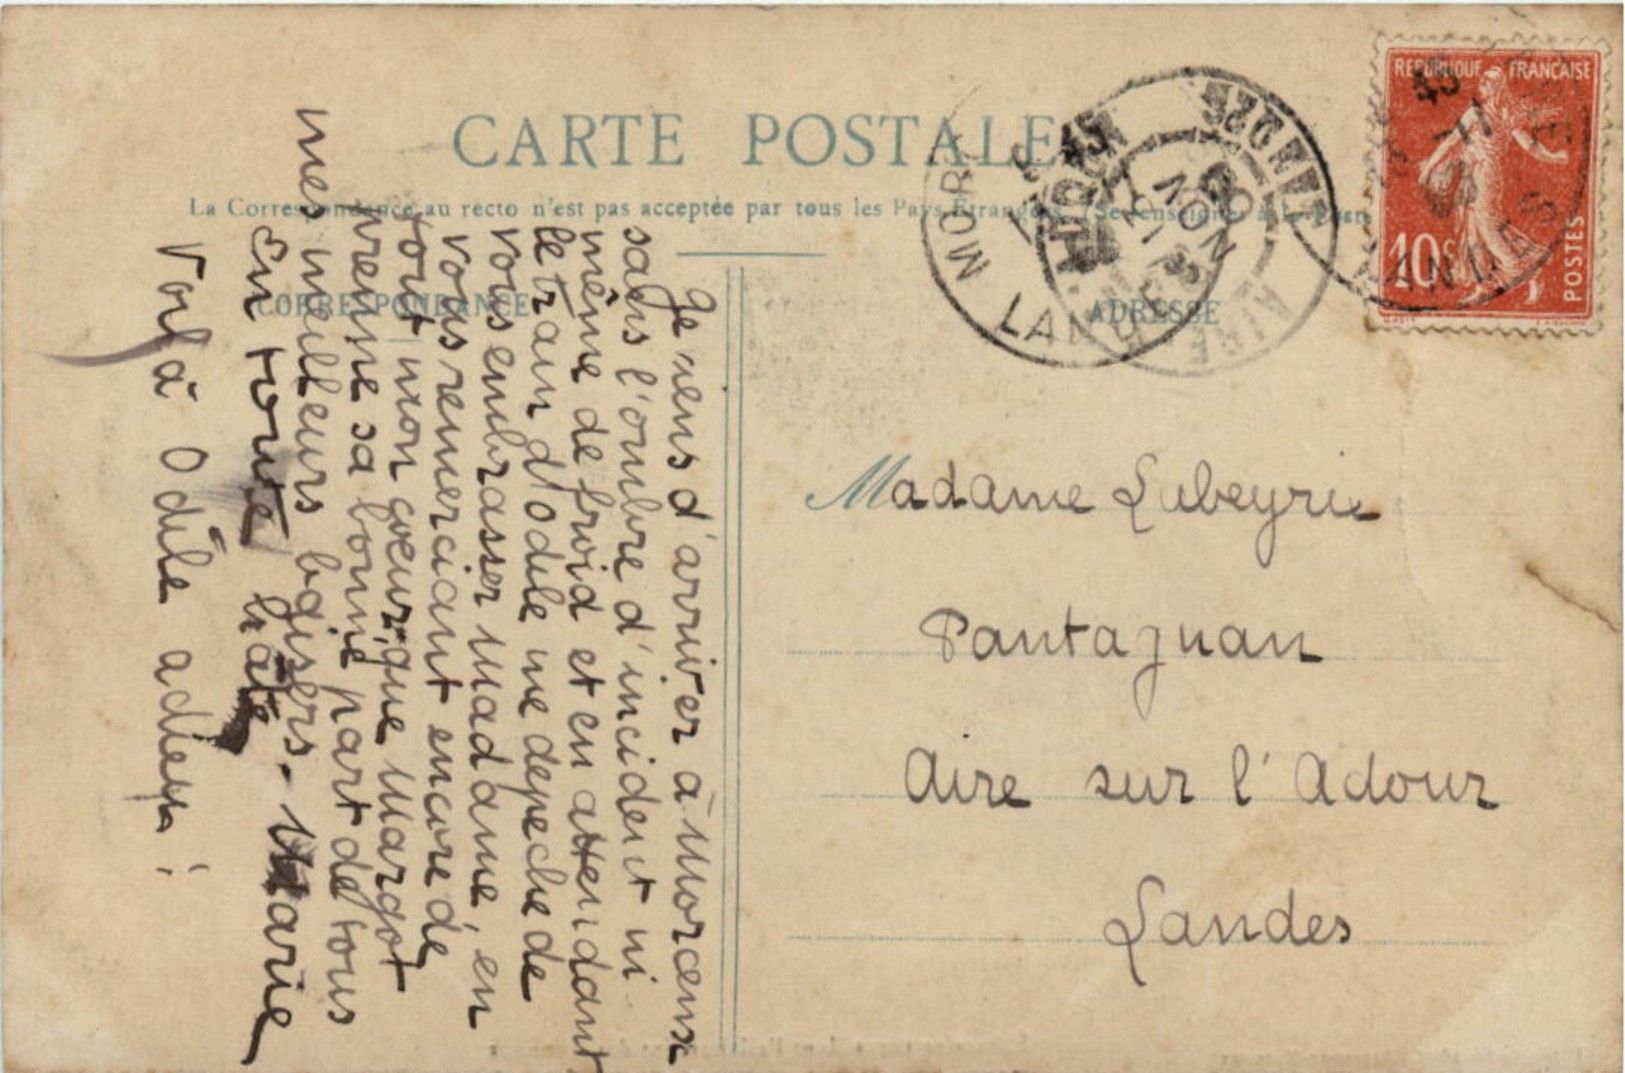 CARTE POSTALE
La Correspondance au recto n'est pas acceptée par tous les Pays Étrangers
CORRESPONDANCE
ADRESSE
RÉPUBLIQUE FRANÇAISE
10c
POSTES
LANDES
Je viens d'arriver à Morcenx
sans l'ombre d'incident ni
même de froid et en attendant
le train d'Odile me depeche de
vous embrasser Madame, en
vous remerciant encore de
tout mon coeur, que Margot
prenne sa bonne part de tous
mes meilleurs baisers. Marie
En toute hâte
Voilà Odile adieu!
Madame Labeyrie
Pantagnan
Aire sur l'Adour
Landes